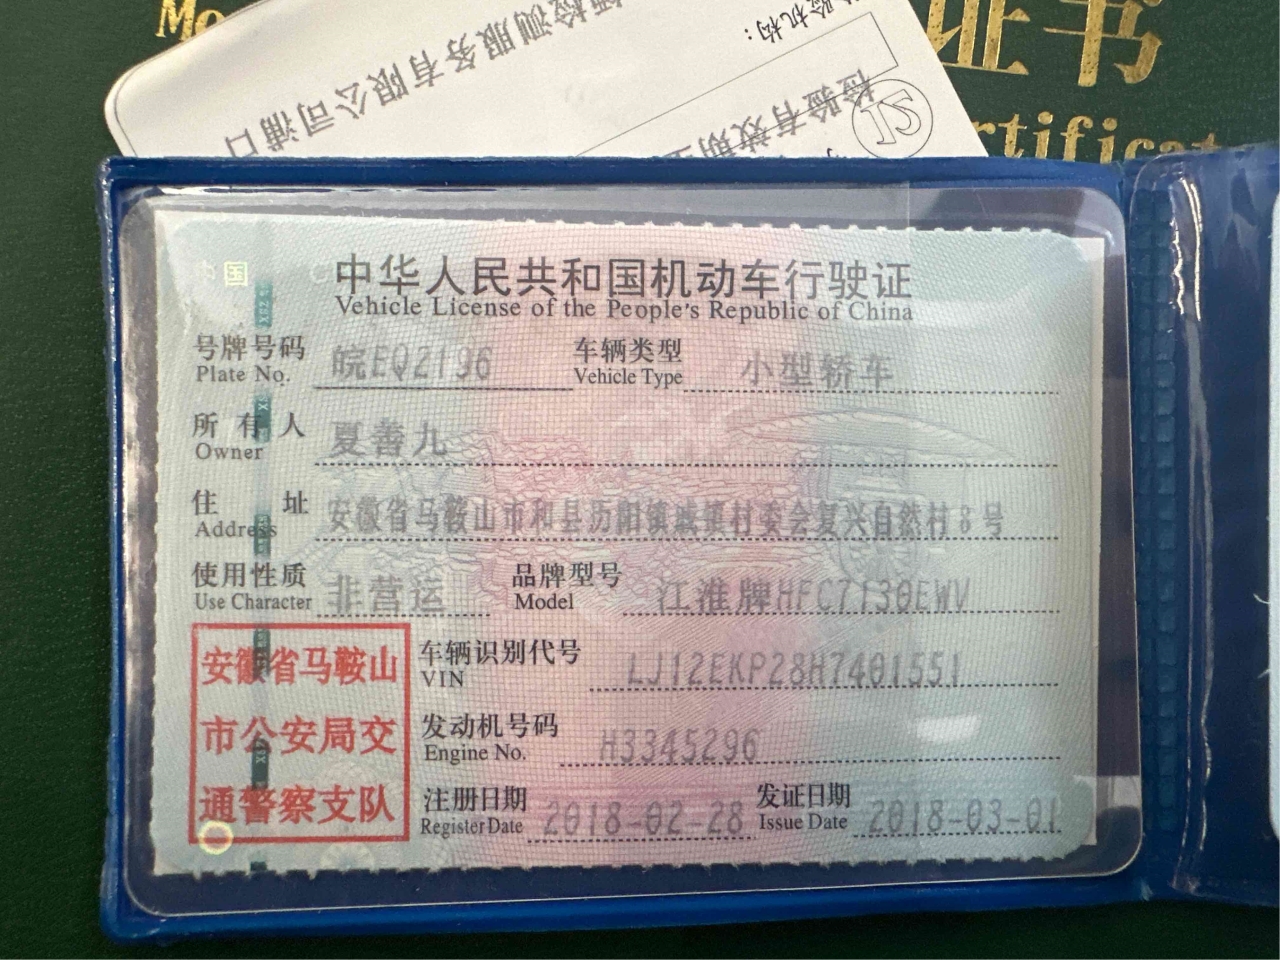 Mo
证书
rtificat
检测服务有限公司浦口
验机构：
检验有效期至
中国
中华人民共和国机动车行驶证
Vehicle License of the People's Republic of China
号牌号码 皖EQ2196 车辆类型 小型轿车
Plate No. Vehicle Type
所有人 夏善九
Owner
住址 安徽省马鞍山市和县历阳镇城镇村委会复兴自然村8号
Address
使用性质 非营运 品牌型号 江淮牌HFC7130EWV
Use Character Model
安徽省马鞍山
市公安局交
通警察支队
车辆识别代号 LJ12EKP28H7401551
VIN
发动机号码 H3345296
Engine No.
注册日期 2018-02-28 发证日期 2018-03-01
Register Date Issue Date